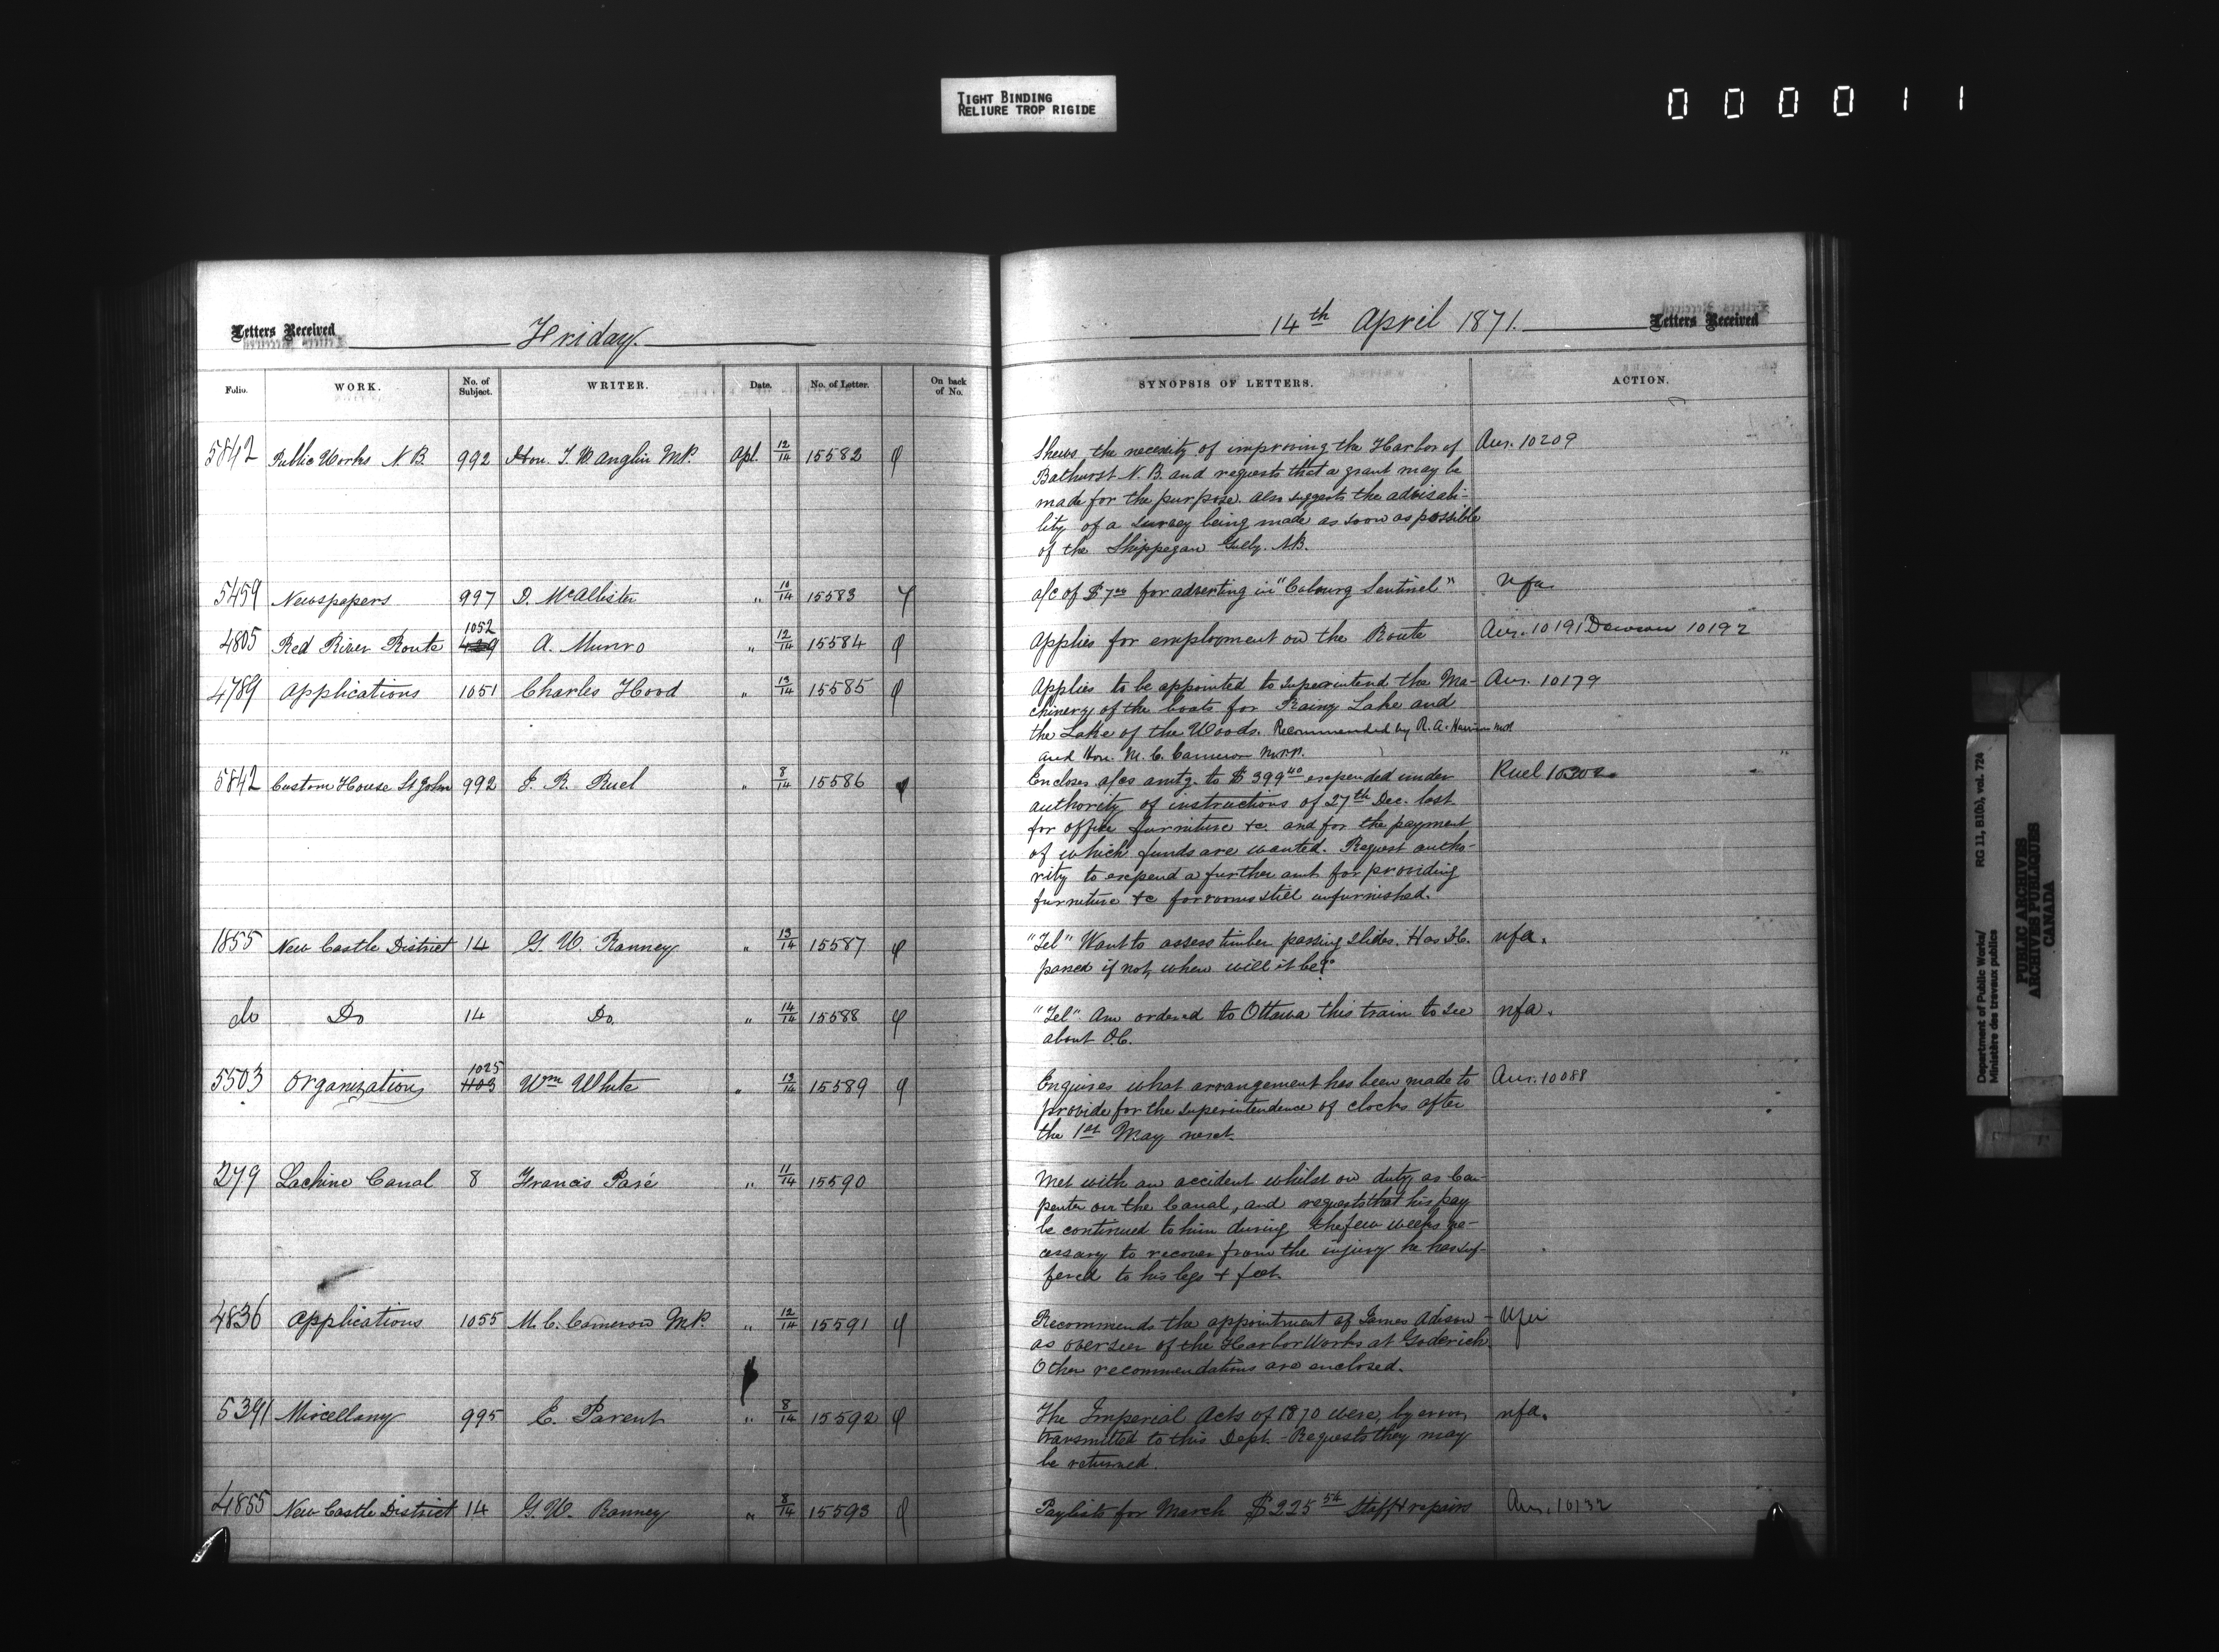 TIGHT BINDING
RELIURE TROP RIGIDE
000011
Letters Received
Friday.
Folio.
WORK.
No. of Subject.
WRITER.
Date.
No. of Letter.
On back of No.
5842 Public Works N.B. 992 Hon. T. W. Anglin M.P. Apl. 12/14 15582
5459 Newspapers 997 D. McAllister " 10/14 15583
1052
4805 Red River Route 429 A. Munro " 12/14 15584
4789 Applications 1051 Charles Hood " 13/14 15585
5842 Custom House St John 992 J. R. Ruel " 8/14 15586
1855 New Castle District 14 G. W. Ranney " 13/14 15587
do Do 14 Do. " 14/14 15588
1025
5503 Organization 1103 Wm White " 13/14 15589
279 Lachine Canal 8 Francis Paré " 11/14 15590
4836 Applications 1055 M. C. Cameron M.P. " 12/14 15591
5391 Miscellany 995 E. Parent " 8/14 15592
4855 New Castle District 14 G. W. Ranney " 8/14 15593
14th April 1871.
Letters Received
SYNOPSIS OF LETTERS.
ACTION.
Shews the necessity of improving the Harbor of Ans. 10209
Bathurst N.B. and requests that a grant may be
made for the purpose. also suggests the advisabi-
lity of a survey being made as soon as possible
of the Shippegan Gully. N.B.
a/c of $7 00 for adverting in "Cobourg Sentinel" nfa
Applies for employment on the Route Ans. 10191 Dawson 10192
Applies to be appointed to superintend the Ma- Ans. 10179
chinery of the boats for Rainy Lake and
the Lake of the Woods. Recommended by R. A. Harrison MP.
and Hon. M. C. Cameron M.P.P.
Encloses a/cs amtg. to $399 40 expended under Ruel
authority of instructions of 27th Dec. last
for office furniture &c. and for the payment
of which funds are wanted. Request autho-
rity to expend a further amt for providing
furniture &c for rooms still unfurnished.
"Tel" Want to assess timber passing slides. Has O.C. nfa.
passed if not, when will it be?
"Tel" Am ordered to Ottawa this train to see nfa.
about O.C.
Enquires what arrangement has been made to Ans. 10088
provide for the superintendence of clocks after
the 1st May next.
Met with an accident whilst on duty as Car-
penter on the Canal, and requests that his pay
be continued to him during the few weeks ne-
cessary to recover from the injury he has suf-
fered to his legs & feet.
Recommends the appointment of James Adison - Nfa
as overseer of the Harbor Works at Goderich.
Other recommendations are enclosed.
The Imperial Acts of 1870 were, by error, nfa.
transmitted to this Dept. - Requests they may
be returned.
Paylists for March $225 54 Staff & repairs Ans. 10132
Department of Public Works/ RG 11, B1(b), vol. 724
Ministère des travaux publics
PUBLIC ARCHIVES
ARCHIVES PUBLIQUES
CANADA